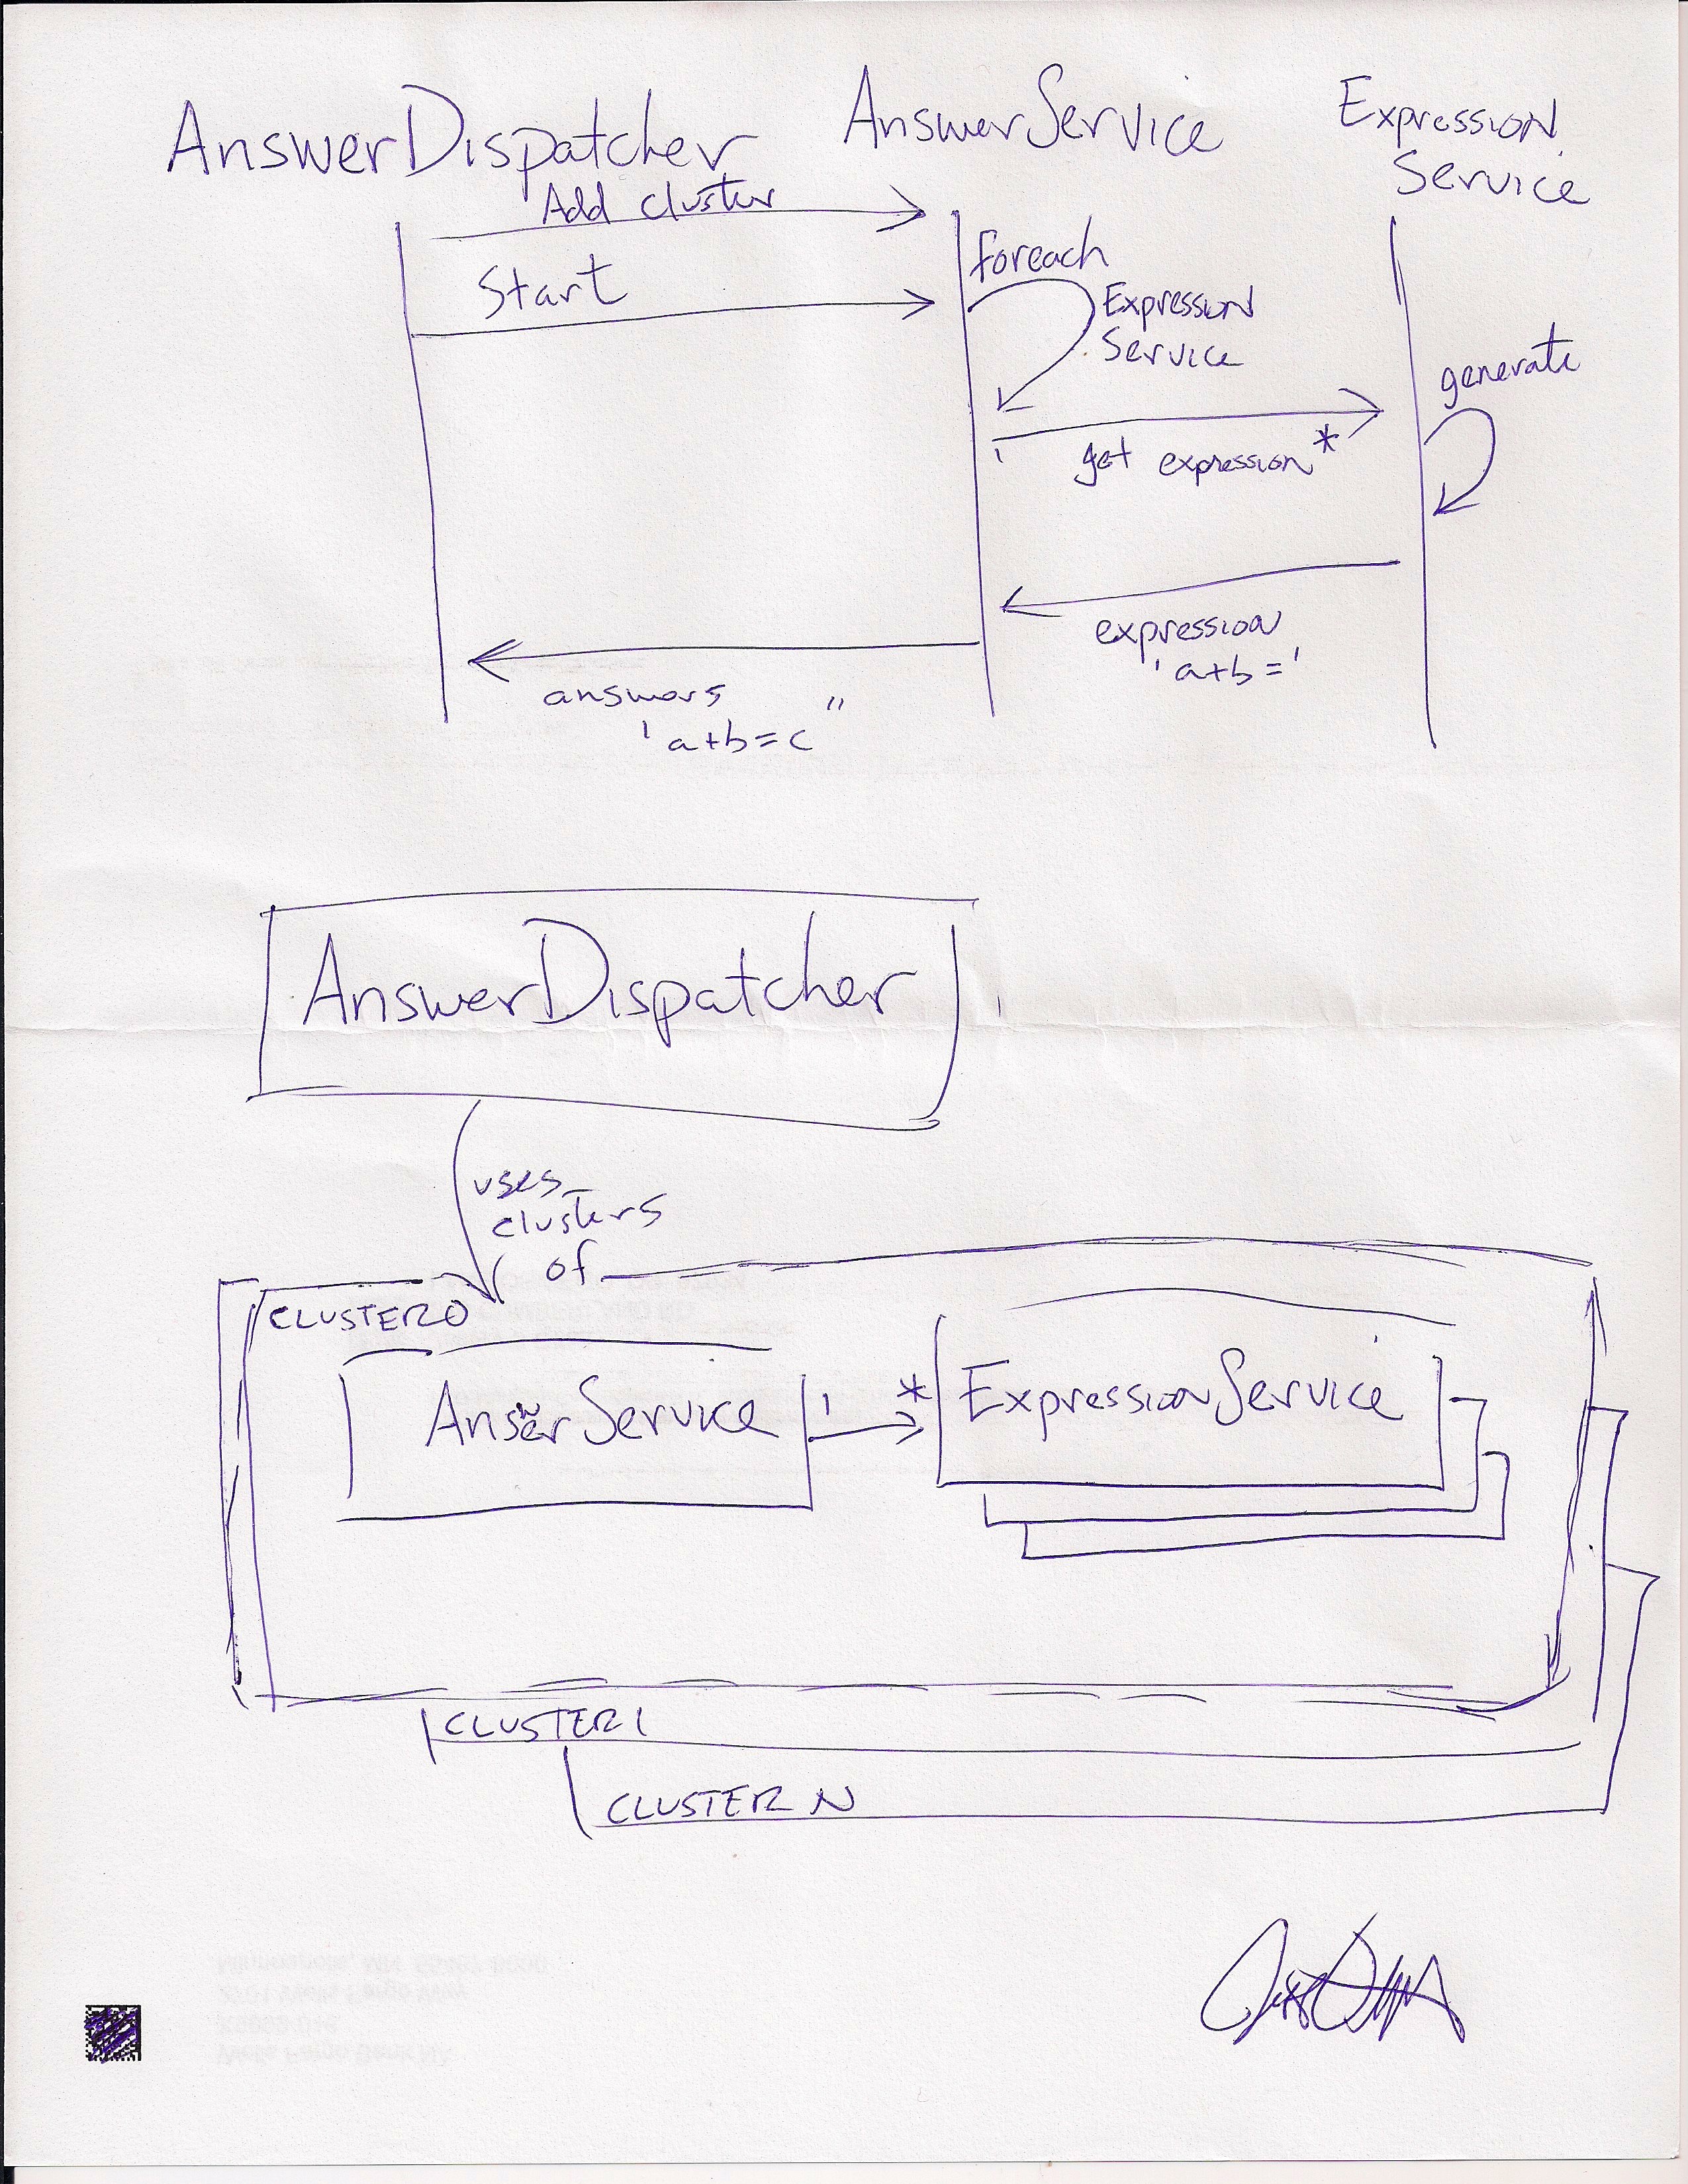 AnswerDispatcher
AnswerService
Expression
Service
Add cluster
Start
foreach
Expression
Service
generate
get expression *
expression
' a+b= '
answers
' a+b=c "
AnswerDispatcher
uses
clusters
of
CLUSTER0
AnswerService
1
*
ExpressionService
CLUSTER1
CLUSTER N